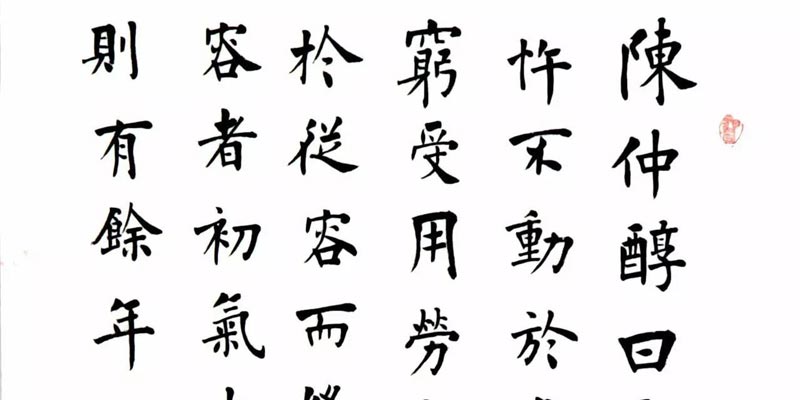 陳仲醇曰
忤不動於
窮受用勞
於從容而
容者初氣
則有餘年